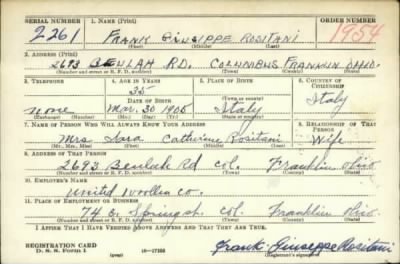 SERIAL NUMBER 1. NAME (Print) ORDER NUMBER
2261 FRANK GIUSEPPE ROSITANI 1954
(First) (Middle) (Last)
2. ADDRESS (Print)
2693 BEULAH RD. COLUMBUS FRANKLIN OHIO.
(Number and street or R. F. D. number) (Town) (County) (State)
3. TELEPHONE 4. AGE IN YEARS 5. PLACE OF BIRTH 6. COUNTRY OF CITIZENSHIP
35
DATE OF BIRTH Italy Italy
none Mar. 30 1905
(Exchange) (Number) (Mo.) (Day) (Yr.) (State or country)
7. NAME OF PERSON WHO WILL ALWAYS KNOW YOUR ADDRESS 8. RELATIONSHIP OF THAT PERSON
Mrs. Sara Catherine Rositani Wife
(Mr., Mrs., Miss) (First) (Middle) (Last)
9. ADDRESS OF THAT PERSON
2693 Beulah Rd Col. Franklin Ohio
(Number and street or R. F. D. number) (Town) (County) (State)
10. EMPLOYER'S NAME
United Woollen co.
11. PLACE OF EMPLOYMENT OR BUSINESS
74 E. Spring st. Col. Franklin Ohio
(Number and street or R. F. D. number) (Town) (County) (State)
I AFFIRM THAT I HAVE VERIFIED ABOVE ANSWERS AND THAT THEY ARE TRUE.
REGISTRATION CARD
D. S. S. Form 1 (over) Frank Giuseppe Rositani
(Registrant's signature)